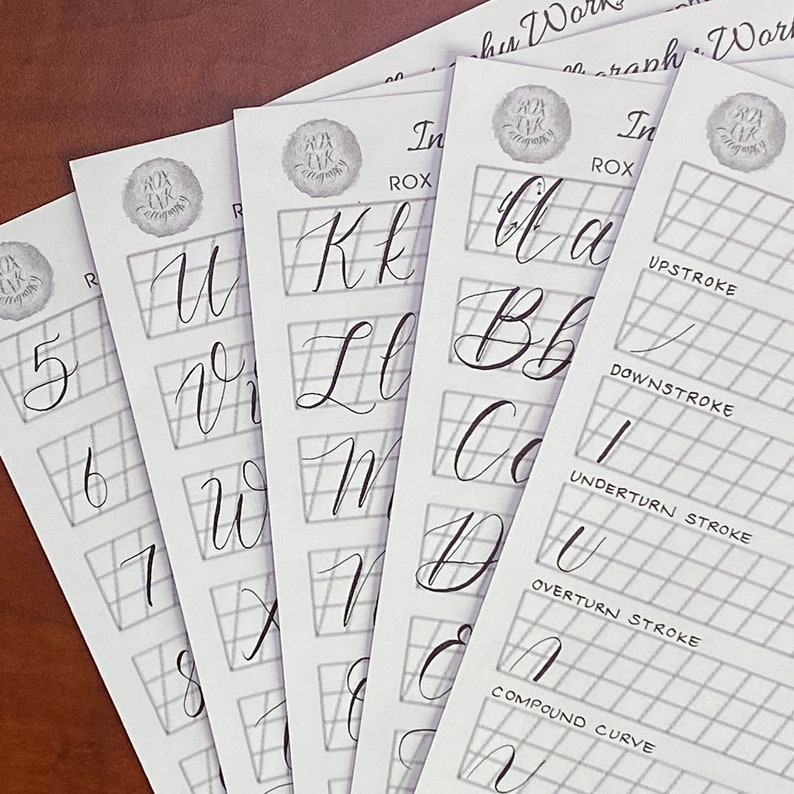 ROX
Calligraphy
5
6
7
8
ROX
Calligraphy
U
V
W
X
ROX
Calligraphy
In
ROX
K k
L l
M
N
ROX
Calligraphy
In
ROX
A a
B b
C c
D
E
ROX
Calligraphy
UPSTROKE
DOWNSTROKE
UNDERTURN STROKE
OVERTURN STROKE
COMPOUND CURVE